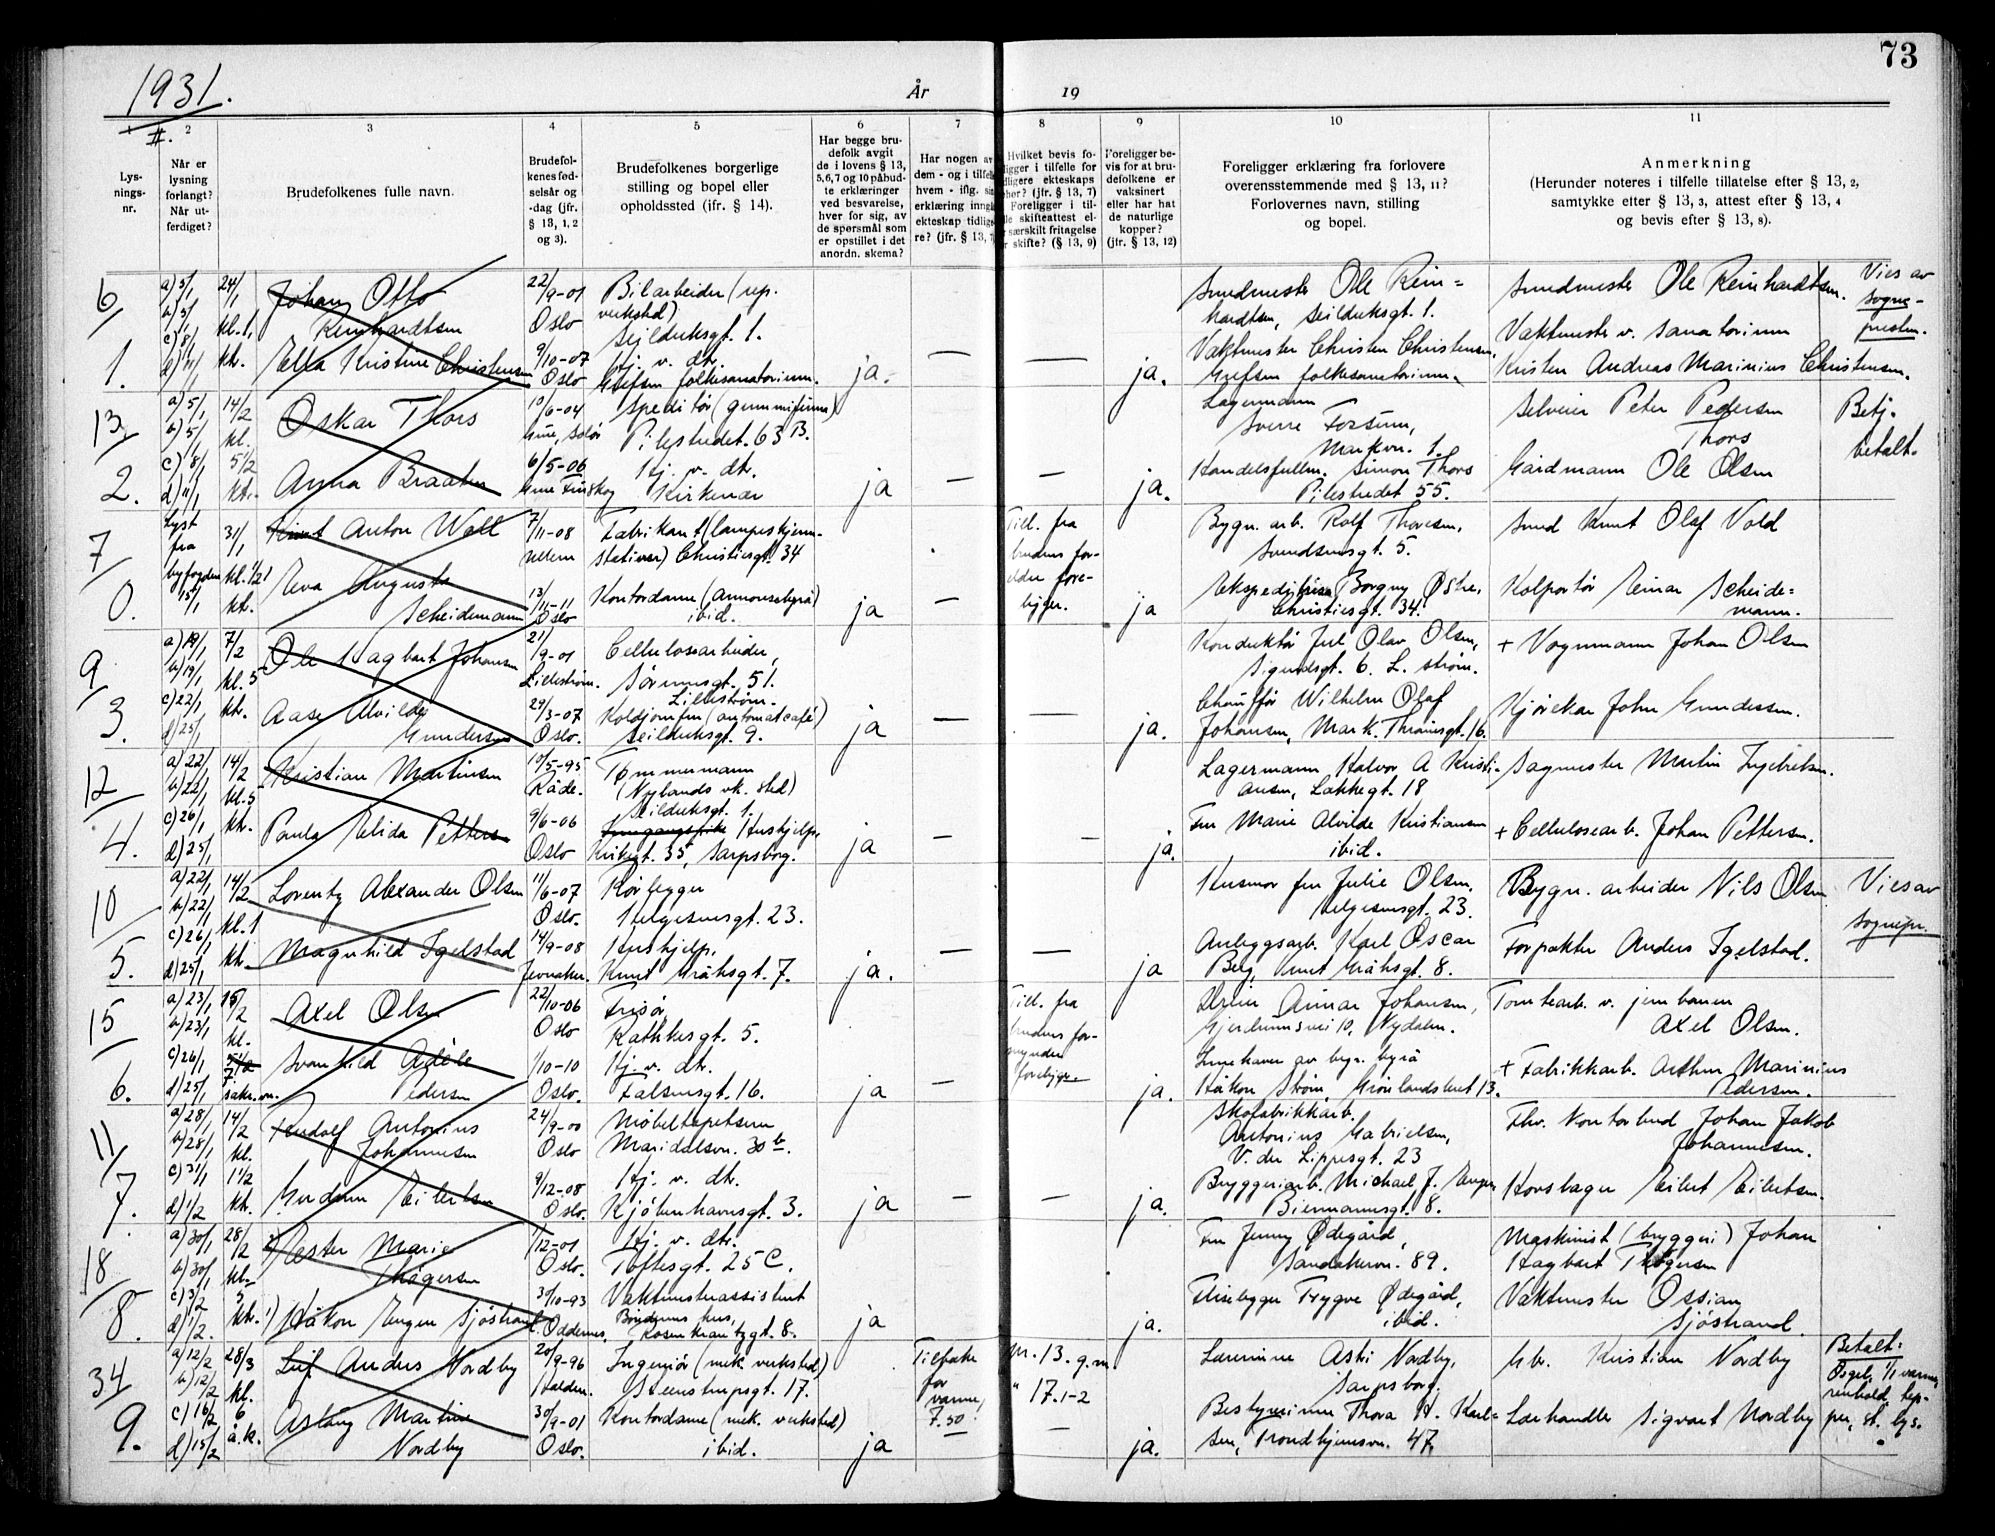 73
1931.
År
19
1
2
3
4
5
6
7
8
9
10
11
Lys-
nings-
nr.
Når er
lysning
forlangt?
Når ut-
ferdiget?
Brudefolkenes fulle navn.
Brudefol-
kenes fød-
selsår og
-dag (jfr.
§ 13, 1, 2
og 3).
Brudefolkenes borgerlige
stilling og bopel eller
opholdssted (ifr. § 14).
Har begge bru-
defolk avgit
de i lovens § 13,
5, 6, 7 og 10 påbud-
te erklæringer
ved besvarelse,
hver for sig, av
de spørsmål som
er opstillet i det
anordn. skema?
Har nogen av
dem - og i tilfelle
hvem - iflg. sin
erklæring inngå
ekteskap tidlige
re? (jfr. § 13, 7
Hvilket bevis fo-
ligger i tilfelle for
dligere ekteskaps
hør? (jfr. § 13, 7)
Foreligger i til-
le skifteattest el-
særskilt fritagelse
skifte? (§ 13, 9)
Foreligger be-
vis for at bru-
defolkene er
vaksinert
eller har hat
de naturlige
kopper?
(jfr. § 13, 12)
Foreligger erklæring fra forlovere
overensstemmende med § 13, 11?
Forlovernes navn, stilling
og bopel.
Anmerkning
(Herunder noteres i tilfelle tillatelse efter § 13, 2,
samtykke efter § 13, 3, attest efter § 13, 4
og bevis efter § 13, 8).
6
1.
a) 5/1
b) 5/1
c) 8/1
d) 11/1
24/1
kl. 1,
ktr.
Johan Otto
Reinhardtsen
Ella Kristine Christensen
22/9-01
Oslo
9/10-07
Oslo
Bilarbeider (rep.
verksted)
Seilduksgt. 1.
Hj. v. dtr.
Grefsen folkesanatorium.
ja.
—
—
ja.
Smedmester Ole Rein=
hardtsen, Seilduksgt. 1.
Vaktmester Christen Christensen,
Grefsen folkesanatorium.
Smedmester Ole Reinhardtsen.
Vaktmester v. sanatorium
Kristen Andreas Marinius Christensen.
Vies av
sogne-
presten.
13
2.
a) 5/1
b) 5/1
c) 8/1
d) 11/1
14/2
kl.
5 1/2
ktr.
Oskar Thors
Anna Braaten
10/6-04
6/5-06
Speditør (gummifirma)
Pilestredet. 63 B.
Hj. v. dtr.
Kirkenær
ja
—
—
ja.
Lagermann
Sverre Fossum,
Markvn. 1.
Handelsfullm. Simon Thors
Pilestredet 55.
Selveier Peter Pedersen
Thors
Gårdmann Ole Olsen
Betj.
betalt.
7
0.
Lyst
fra
byfogden
15/1
31/1
kl. 1/2 1
ktr.
Knut Anton Wold
Eva Augusta
Scheidemann
7/11-08
13/11-11
Oslo
Fabrikant (lampeskjerm-
stativer) Christiesgt. 34
Kontordame (annonsebyrå)
ibid.
ja
—
Till. fra
brudens for-
eldre fore-
ligger.
ja
Bygn. arb. Rolf Thoresen,
Svendsensgt. 5.
Ekspeditrise Borgny Østre,
Christiesgt. 34.
Smed Knut Olaf Vold
Kolportør Einar Scheide-
mann.
9
3.
a) 19/1
b) 19/1
c) 22/1
d) 25/1
7/2
kl. 5
ktr.
Ole Hagbart Johansen
Aase Alvilde
Gundersen
21/9-01
Lillestrøm.
29/3-07
Oslo.
Cellulosearbeider,
Sørumsgt. 51.
Lillestrøm.
Koldjomfru (automatcafé)
Seilduksgt. 9.
ja
—
—
ja.
Konduktør Jul. Olav Olsen,
Sigurdsgt. 6. L. strøm.
Chauffør Wilhelm Olaf
Johansen, Mark. Thranesgt. 16.
+ Vognmann Johan Olsen
Kjørekar John Gundersen.
12
4.
a) 22/1
b) 22/1
c) 26/1
d) 25/1
14/2
kl. 5
ktr.
Kristian Martinsen
Paula Elida Petters
10/5-95
Råde.
9/6-06
Oslo
Tømmermann
(Nylands vk. sted)
Seilduksgt. 1.
Hushjelp,
Kirkegt. 35, Sarpsborg.
ja
—
—
ja.
Lagermann Halvor A Kristi-
ansen, Lakkegt. 18
Fru Marie Alvilde Kristiansen
ibid.
Sagmester Martin Ingebretsen.
+ Cellulosearb. Johan Pettersen.
10
5.
a) 22/1
b) 22/1
c) 26/1
d) 25/1
14/2
kl. 1
ktr.
Lorentz Alexander Olsen
Magnhild Igelstad
11/6-07
Oslo.
14/9-08
Jevnaker.
Rørlegger
Helgesensgt. 23.
Hushjelp,
Knut Gråhsgt. 7.
ja.
—
—
ja
Husmor fru Julie Olsen,
Helgesensgt. 23.
Anleggsarb. Karl Oscar
Berg, Knut Gråhsgt. 8.
Bygn. arbeider Nils Olsen
Forpakter Anders Igelstad.
Vies av
sognepr.
15
6.
a) 23/1
b) 23/1
c) 26/1
d) 25/1
15/2
kl.
7
sakr.
Axel Olsen
Svanhild Adéle
Pedersen
22/10-06
Oslo
1/10-10
Oslo.
Frisør,
Rathkesgt. 5.
Hj. v. dtr.
Falsensgt. 16.
ja
—
Till. fra
brudens for-
mynder
foreligger.
ja.
Einar Johansen,
Gjerdrumsvei 10, Nydalen.
Innehaver av begr. byrå
Håkon Strøm, Grønlandsleret 13.
Tomtearb. v. jernbanen
Axel Olsen.
+ Fabrikkarb. Arthur Marinius
Pedersen.
11
7.
a) 28/1
b) 28/1
c) 31/1
d) 1/2
14/2
kl.
1 1/2
ktr.
Rudolf Antonius
Johannesen
Gudrun Eilertsen
24/9-00
Oslo
9/12-08
Oslo.
Møbeltapetserer
Maridalsvn. 30 b.
Hj. v. dtr.
Kjøbenhavnsgt. 3.
ja
—
—
ja.
Skofabrikkarb.
Antonius Gabrielsen,
V. der Lippesgt. 23
Bryggeriarb. Michael J. Engen
Biermannsgt. 8.
Fhv. Kontorbud Johan Jakob
Johannesen.
Hovslager Eilert Eilertsen.
18
8.
a) 30/1
b) 30/1
c) 3/2
d) 1/2.
28/2
kl.
5
ktr.
2) Ester Marie
Thøgersen
1) Håkon Eugen Sjøstrand
1/12-01
Oslo.
30/10-93
Oddernes.
Hj. v. dtr.
Toftesgt. 25 C.
Vaktmesterassistent
Bøndernes hus,
Rosenkrantzgt. 8.
ja
ja.
Fru Jenny Ødegård,
Sandakervn. 89.
Flislegger Trygve Ødegård,
ibid.
Maskinist (bryggeri) Johan
Hagbart Thøgersen
Vaktmester Ossian
Sjøstrand
34
9.
a) 12/2
b) 12/2
c) 16/2
d) 15/2
28/3
kl.
6
å.k.
Leif Anders Nordby
Aslaug Martine
Nordby
20/9-96
Halden.
30/9-01
Oslo.
Ingeniør (mek. verksted)
Steenstrupsgt. 17.
Kontordame (mek. verksted)
ibid.
ja
Tilføie
for
varme,
7.50
Nr. 13. g.m.
" 17. 1-2
—
ja.
Lærerinne Aski Nordby,
Sarpsborg.
Bestyrerinne Thora H. Karl=
sen, Trondhjemsvn. 47.
Gbr. Kristian Nordby
Lærhandler Sigvart Nordby
Betalt:
Orgel, 1/1 varme,
renhold, tep-
per, st. lys.